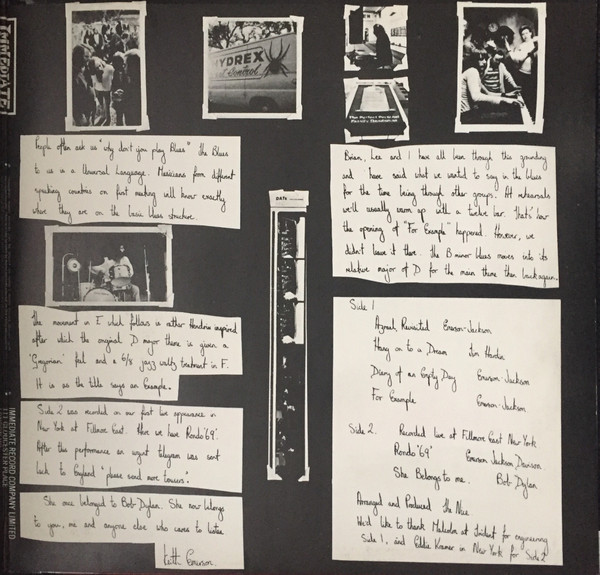 IMMEDIATE
HYDREX
Control
People often ask us "why don't you play Blues" the Blues
to us is a Universal Language. Musicians from different
speaking countries on first meeting will know exactly
where they are on the basic blues structure.
The movement in E which follows is either Hendrix inspired
after which the original D major theme is given a
'Gregorian' feel and a 6/8 jazz waltz treatment in F.
It is as the title says an Example.
Side 2 was recorded on our first live appearance in
New York at Fillmore East. Here we have Rondo '69'.
After this performance an urgent telegram was sent
back to England "please send more towers".
She once belonged to Bob Dylan. She now belongs
to you, me and anyone else who cares to listen
Keith Emerson.
DATE
Brian, Lee and I have all been through this grounding
and have said what we wanted to say in the blues
for the time being through other groups. At rehearsals
we'll usually warm up with a twelve bar. that's how
the opening of "For Example" happened. However, we
didn't leave it there. the B minor blues moves into its
relative major of D for the main theme then back again.
Side 1
Azrael Revisited Emerson-Jackson
Hang on to a Dream Tim Hardin
Diary of an Empty Day Emerson-Jackson
For Example Emerson-Jackson
Side 2. Recorded live at Fillmore East New York
Rondo "69" Emerson Jackson Davison
She Belongs to me. Bob Dylan
Arranged and Produced The Nice
We'd like to thank Malcolm at Trident for engineering
Side 1, and Eddie Kramer in New York for Side 2
IMMEDIATE RECORD COMPANY LIMITED